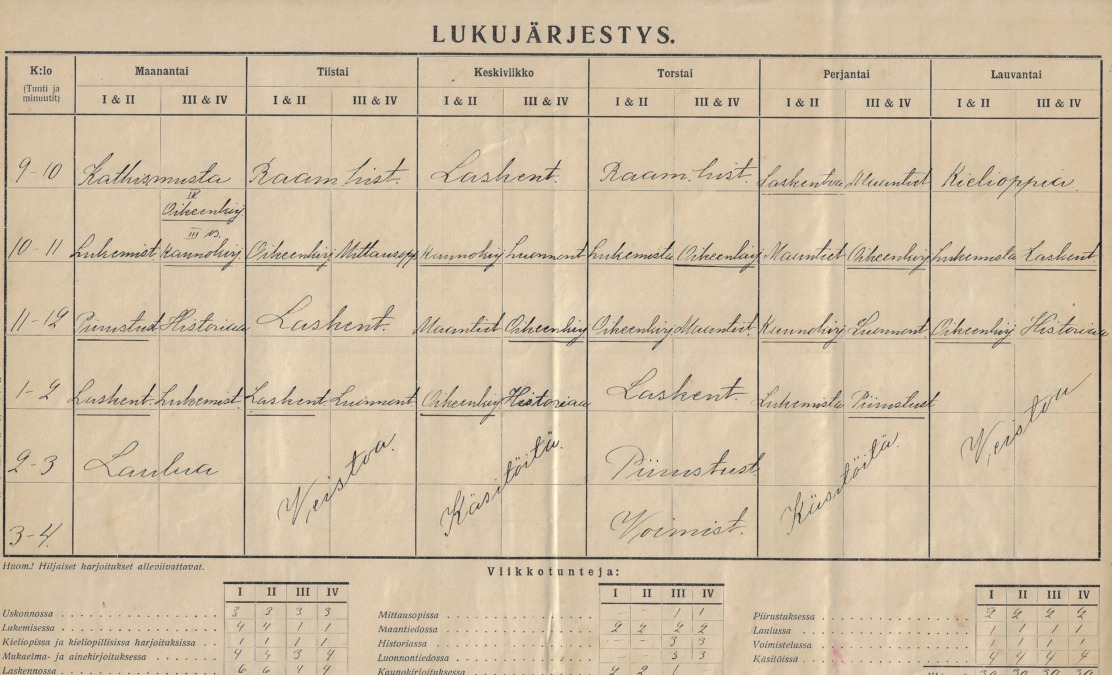 LUKUJÄRJESTYS.
K:lo Maanantai Tiistai Keskiviikko Torstai Perjantai Lauvantai
(Tunti ja minuutit) I & II III & IV I & II III & IV I & II III & IV I & II III & IV I & II III & IV I & II III & IV
9-10 Raam. hist. Laskent. Raam. hist. Laskentoa Maantiet Kielioppia
IV
Oikeenkirj
III
10-11 Lukemist. Kaunokirj. Oikeenkirj Mittausopp Kaunokirj Luonnont Lukemista Oikeenkirj Maantiet Oikeenkirj Lukemista Laskent.
11-12 Piirustust. Historiaa Laskent. Maantiet Oikeenkirj Oikeenkirj Maantiet. Kaunokirj Luonnont. Oikeenkirj Historiaa
1-2 Laskent. Lukemist. Laskent. Luonnont. Oikeenkirj Historiaa Laskent. Lukemista Piirustust Veistoa
2-3 Laulua Veistoa. Käsitöitä. Piirustust. Käsitöitä.
3-4. Voimist.
Huom.! Hiljaiset harjoitukset alleviivattavat.
Viikkotunteja:
I II III IV I II III IV I II III IV
Uskonnossa 3 3 3 3 Mittausopissa - - 1 1 Piirustuksessa 2 2 2 2
Lukemisessa 4 4 1 1 Maantiedossa 2 2 2 2 Laulussa 1 1 1 1
Kieliopissa ja kieliopillisissa harjoituksissa 1 1 1 1 Historiassa - - 3 3 Voimistelussa 1 1 1 1
Mukaelma- ja ainekirjoituksessa 4 4 3 4 Luonnontiedossa 3 3 Käsitöissä 4 4 4 4
Laskennossa 6 6 4 4 Kaunokirjoituksessa 2 2 1 30 30 30 30